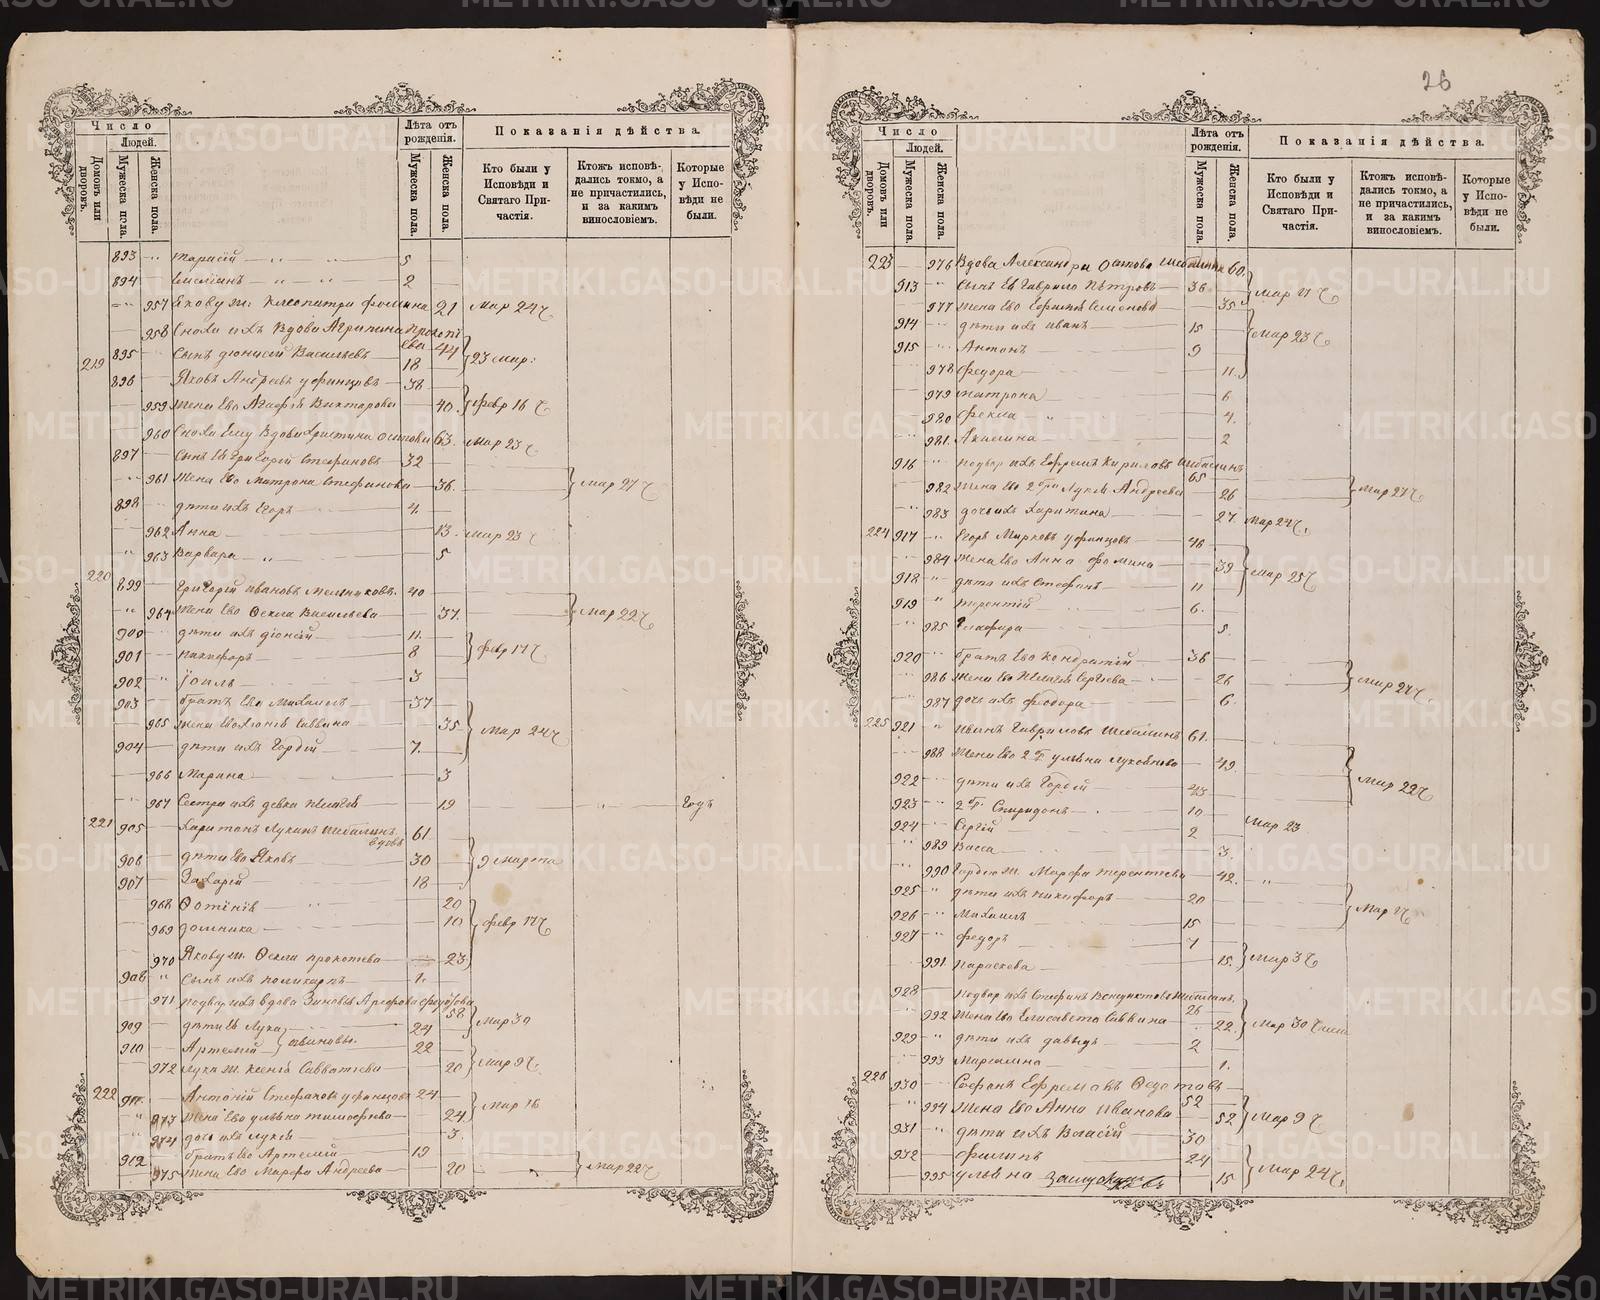 Число
Людей.
Домовъ или дворовъ.
Мужеска пола.
Женска пола.
Лѣта отъ рожденія.
Мужеска пола.
Женска пола.
Показанія дѣйства.
Кто были у Исповѣди и Святаго Причастія.
Ктожъ исповѣдались токмо, а не причастились, и за какимъ винословіемъ.
Которые у Исповѣди не были.
893 Тарасій 5
894 2
957 Якову ж. Клеопатра Фомина 21 Мар 24 ч
958 Сноха ихъ вдова Агрипина Прокопьева 44
895 Сынъ Діонисій Васильевъ 18 23 мар:
219 896 Яковъ Андреевъ Уфинцовъ 38
959 Жена Его Агафія Викторова 40 февр 16 ч
960 Сноха Ему вдова Христина 63 мар 23 ч
897 Сынъ Ея Григорій Стефановъ 32
961 Жена Его Матрона Стефанова 36 мар 27 ч
898 дѣти ихъ Егоръ 4
962 Анна 13 мар 23 ч
963 Варвара 5
220 899 Григорій Ивановъ Мельниковъ 40
964 Жена Его Ѳекла Васильева 37 Мар 22 ч
900 дѣти ихъ Діонисій 11
901 Никифоръ 8 февр 17 ч
902 Іоиль 3
903 братъ Его Михаилъ 37
965 Жена Его Савина 35 Мар 24 ч
904 дѣти ихъ Гордій 7
966 Марина 3
967 Сестра ихъ девка Пелагія 19 Годъ
221 905 Харитонъ Лукинъ Шабалинъ вдовъ 61
906 дѣти Его Яковъ 30 9 марта
907 Захарій 18
968 Фотинія 20
969 Домника 10 февр 17 ч
970 Якову ж. Ѳекла Прокопьева 23
908 Сынъ ихъ Поликарпъ 1
971 подвор ихъ вдова Зиновья Арефьева 58
909 дѣти Ея Лука 24 Мар 30
910 Артемій 22
972 Лука ж. Ксенія Савватеева 20 мар 9 ч
222 911 Антоній Стефановъ Уфинцовъ 24
973 Жена Его Ульяна Тимофеева 24 Мар 16
974 дочь ихъ Лукія 3
912 братъ Его Артемій 19
975 Жена Его Марфа Андреева 20 Мар 22 ч
26
Число
Людей.
Домовъ или дворовъ.
Мужеска пола.
Женска пола.
Лѣта отъ рожденія.
Мужеска пола.
Женска пола.
Показанія дѣйства.
Кто были у Исповѣди и Святаго Причастія.
Ктожъ исповѣдались токмо, а не причастились, и за какимъ винословіемъ.
Которые у Исповѣди не были.
223 976 Вдова Александра Шабалина 60
913 Сынъ Ея Гаврило Петровъ 36 мар 17 ч
977 Жена Его Ефимія Семенова 35
914 дѣти ихъ Иванъ 15 Мар 23 ч
915 Антонъ 9
978 Федора 11
979 Матрона 6
980 Фекла 4
981 Акилина 2
916 подвор ихъ Ефремъ Кириловъ Шабалинъ 65
982 Жена Его 2 бра Лукія Андреева 26 мар 27 ч
983 дочь ихъ Харитина 27 Мар 24 ч.
224 917 Егоръ Марковъ Уфинцовъ 48
984 Жена Его Анна Фомина 39 Мар 25 ч
918 дѣти ихъ Стефанъ 11
919 Терентій 6
985 Глафира 8
920 братъ Его Кондратій 36
986 Жена Его Пелагія Сергеева 26 мар 24 ч
987 дочь ихъ Федора 6
225 921 Иванъ Гавриловъ Шабалинъ 61
988 Жена Его 2 б Ульяна 49 мар 22 ч
922 дѣти ихъ Гордій 43
923 2 б Спиридонъ 10
924 Сергій 2 мар 23
989 Васса 3
990 Гордею ж. Марфа Терентьева 42
925 дѣти ихъ Никифоръ 20 мар
926 Михаилъ 15
927 Федоръ 7
991 Параскева 15 мар 3 ч
928 подвор ихъ Стефанъ Шабалинъ 26
992 Жена Его Елисавета Саввина 22 мар 30
929 дѣти ихъ Давыдъ 2
993 1
226 930 Ефремовъ Ѳедотовъ 52
994 Жена Его Анна Иванова 52 Мар 9 ч
931 дѣти ихъ Власій 30
932 Филипъ 24
995 Ульяна 15 Мар 24 ч